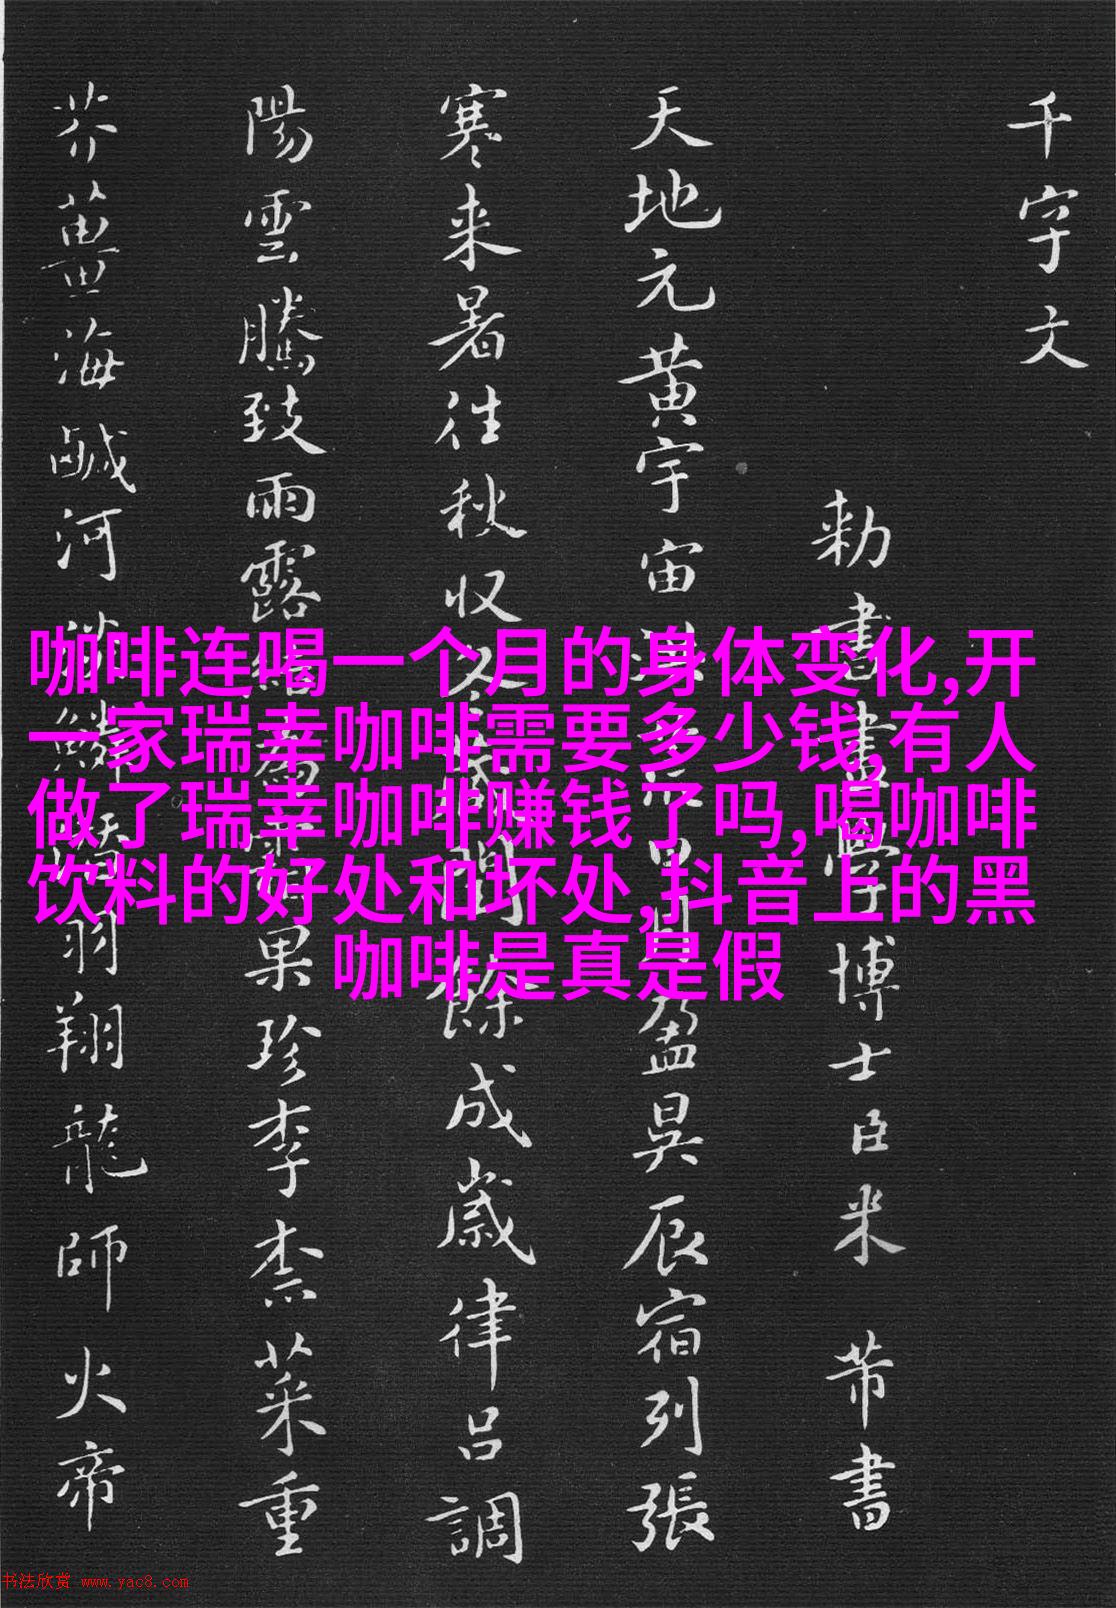 千字文
勅書畫學博士臣米芾書
天地元黄宇宙洪荒日月盈昃辰宿列張
寒来暑往秋収冬藏閏餘成歲律吕調
陽雲騰致雨露結為霜果珍李柰菜重
芥薑海鹹河淡鱗潛羽翔龍師火帝
咖啡连喝一个月的身体变化,开
一家瑞幸咖啡需要多少钱,有人
做了瑞幸咖啡赚钱了吗,喝咖啡
饮料的好处和坏处,抖音上的黑
咖啡是真是假
书法欣赏 www.yac8.com